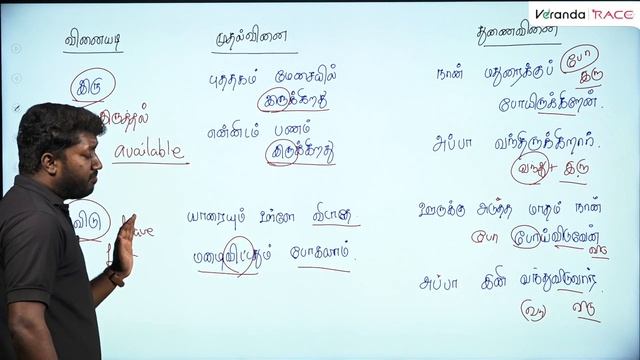 Veranda RACE
வினையடி
முதல்வினை
துணைவினை
இரு
இருத்தல்
available
புத்தகம் மேசையில்
இருக்கிறது
என்னிடம் பணம்
இருக்கிறது
நான் மதுரைக்குப்
போ
இரு
போயிருக்கிறேன்.
அப்பா வந்திருக்கிறார்.
வந்து + இரு
விடு
யாரையும் உள்ளே விடாதே
மழைவிட்டதும் போகலாம்.
ஊருக்கு அடுத்த மாதம் நான்
போ போய்விடுவேன்
விடு
அப்பா இனி வந்துவிடுவார்.
விடு